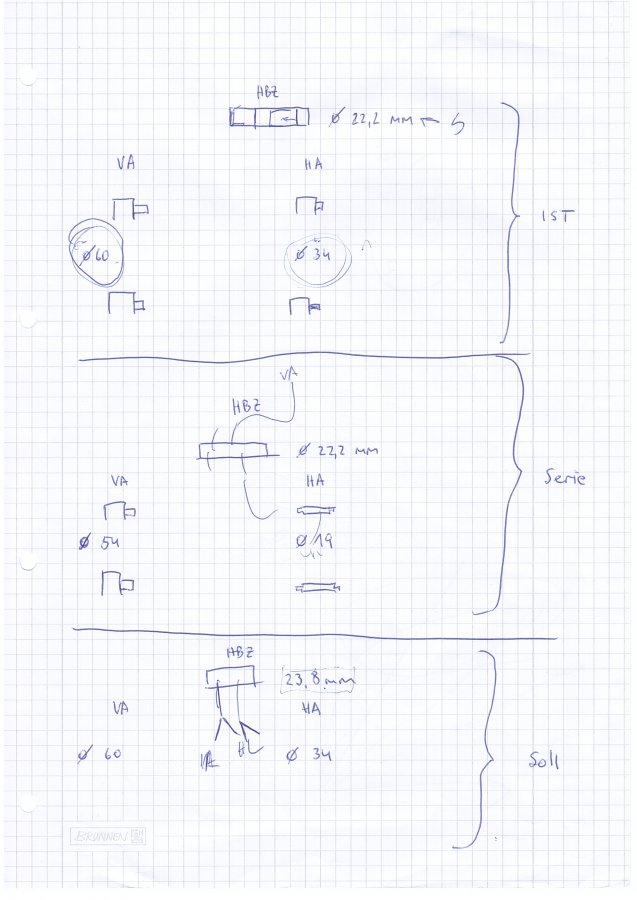 HBZ
Ø 22,2 mm ← S
VA HA
Ø60 Ø 34
IST
VA
HBZ
Ø 22,2 mm
VA HA
Serie
Ø 54 Ø 19
HBZ
23,8 mm
VA HA
Ø 60 VA Ø 34
Soll
BRUNNEN